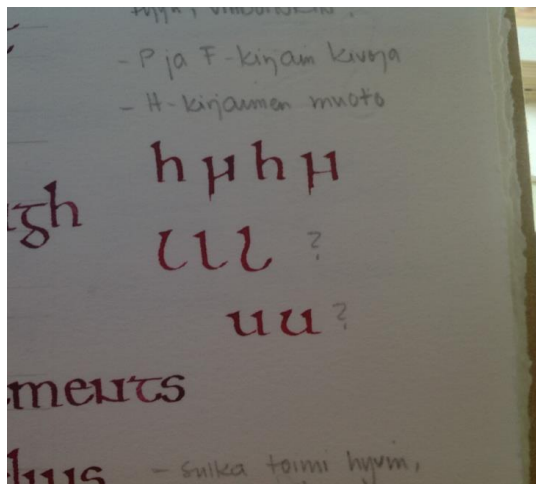 - P ja F-kirjain kivoja
- H-kirjaimen muoto
h µ h µ
l l l ?
gh
u u ?
ments
- sulka toimi hyvin,